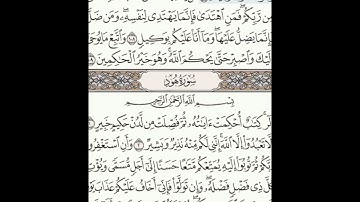 مِن رَّبِّكُمْ ۖ فَمَنِ ٱهْتَدَىٰ فَإِنَّمَا يَهْتَدِى لِنَفْسِهِۦ ۖ وَمَن ضَلَّ
فَإِنَّمَا يَضِلُّ عَلَيْهَا ۖ وَمَآ أَنَا۠ عَلَيْكُم بِوَكِيلٍ ١٠٨ وَٱتَّبِعْ مَا يُوحَىٰٓ
إِلَيْكَ وَٱصْبِرْ حَتَّىٰ يَحْكُمَ ٱللَّهُ ۚ وَهُوَ خَيْرُ ٱلْحَٰكِمِينَ
سُورَةُ هُودٍ
بِسْمِ ٱللَّهِ ٱلرَّحْمَٰنِ ٱلرَّحِيمِ
الٓر ۚ كِتَٰبٌ أُحْكِمَتْ ءَايَٰتُهُۥ ثُمَّ فُصِّلَتْ مِن لَّدُنْ حَكِيمٍ خَبِيرٍ ١
أَلَّا تَعْبُدُوٓا۟ إِلَّا ٱللَّهَ ۚ إِنَّنِى لَكُم مِّنْهُ نَذِيرٌ وَبَشِيرٌ ٢ وَأَنِ ٱسْتَغْفِرُوا۟
رَبَّكُمْ ثُمَّ تُوبُوٓا۟ إِلَيْهِ يُمَتِّعْكُم مَّتَٰعًا حَسَنًا إِلَىٰٓ أَجَلٍ مُّسَمًّى وَيُؤْتِ
كُلَّ ذِى فَضْلٍ فَضْلَهُۥ ۖ وَإِن تَوَلَّوْا۟ فَإِنِّىٓ أَخَافُ عَلَيْكُمْ عَذَابَ يَوْمٍ